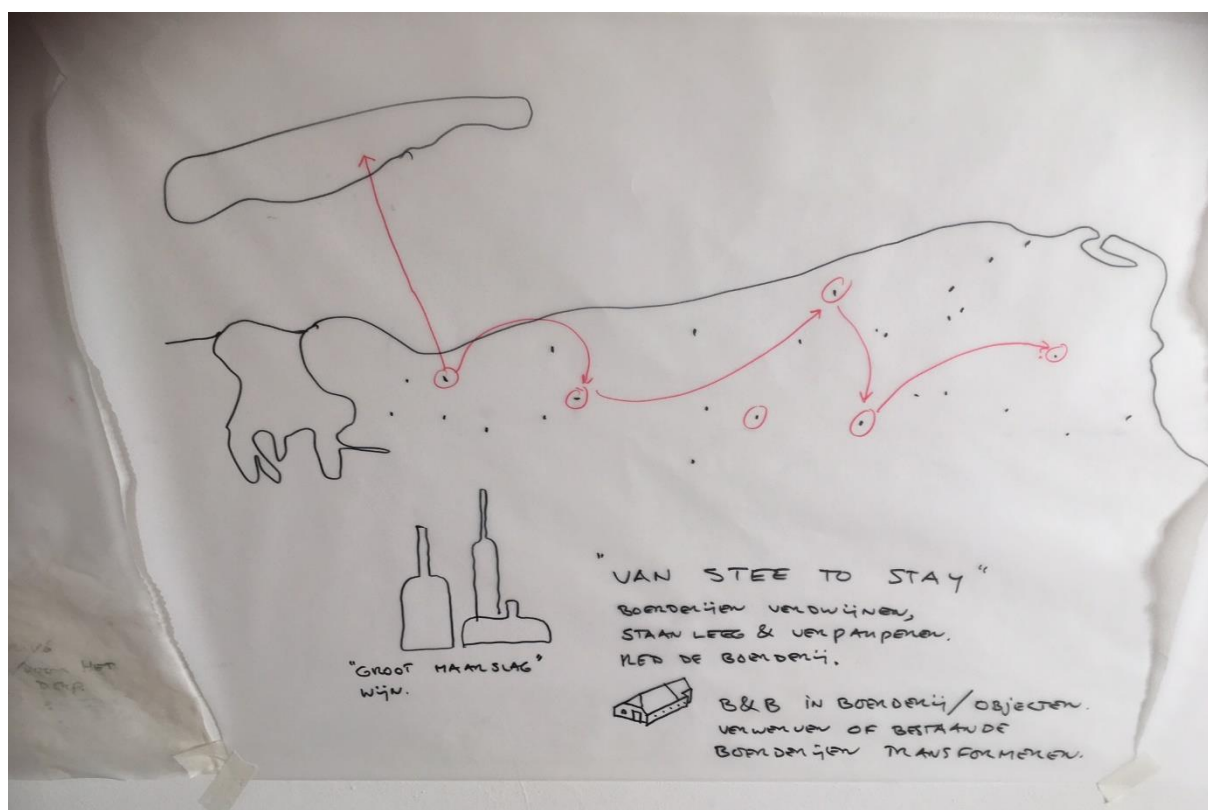 "GROOT MAARSLAG"
WIJN.
"VAN STEE TO STAY"
BOERDERIJEN VERDWIJNEN,
STAAN LEEG & VERPAUPEREN.
RED DE BOERDERIJ.
B&B IN BOERDERIJ/OBJECTEN.
VERWERVEN OF BESTAANDE
BOERDERIJEN TRANSFORMEREN.